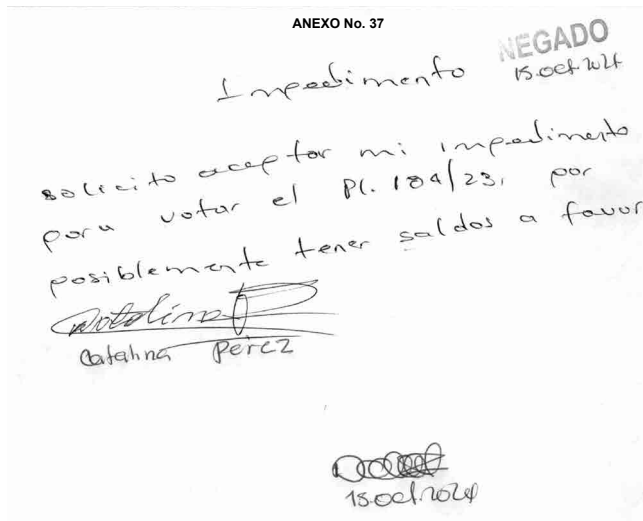 ANEXO No. 37
NEGADO
Impedimento
15.oct.2024
solicito aceptar mi impedimento
para votar el Pl. 184/23, por
posiblemente tener saldos a favor
Catalina Perez
15.oct.2024